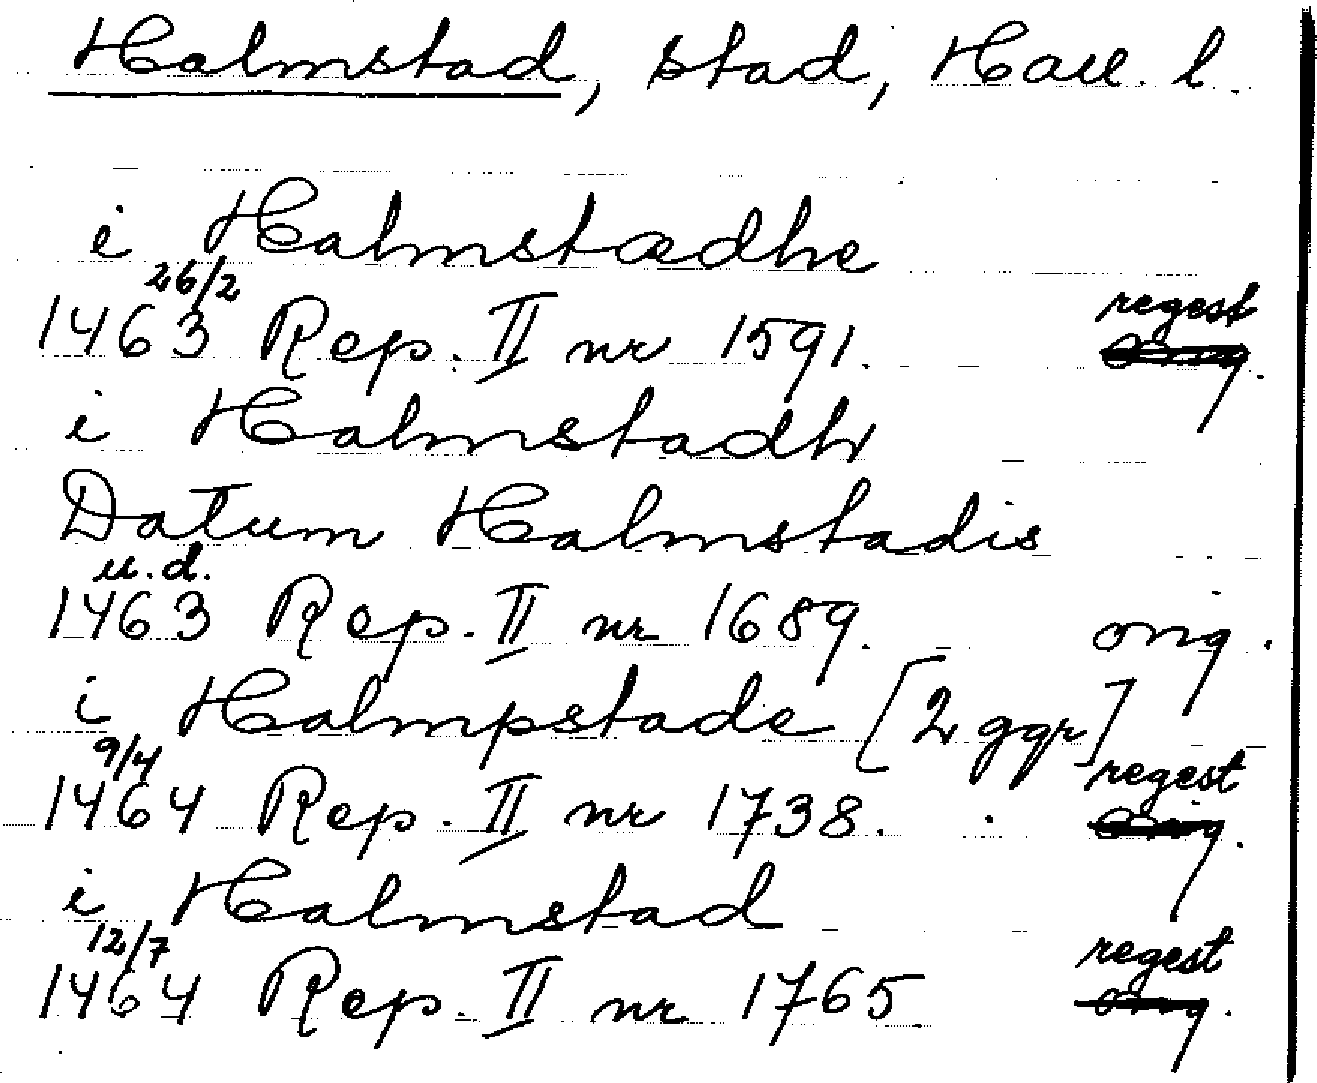 Halmstad, stad, Hall. l.
i Halmstædhe
26/2 regest
1463 Rep. II nr 1591. orig.
i Halmstadh
Datum Halmstadis
u.d.
1463 Rep. II nr 1689. orig.
i Halmpstade [2 ggr]
9/4 regest
1464 Rep. II nr 1738. orig.
i Halmstad
12/7 regest
1464 Rep. II nr 1765 orig.